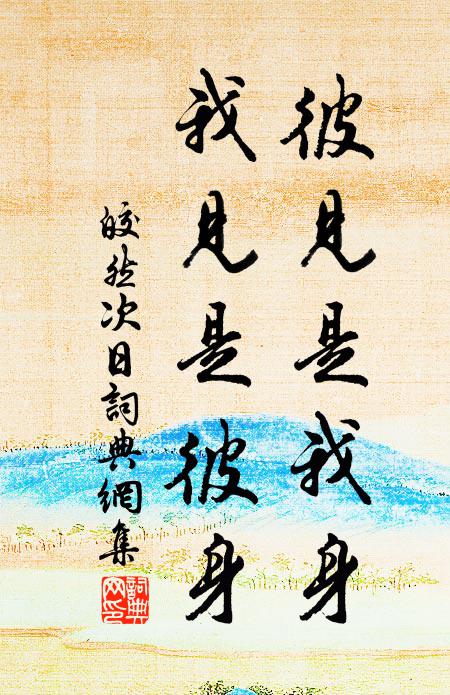 彼見是我身
我見是彼身
皎然次日詞典網集